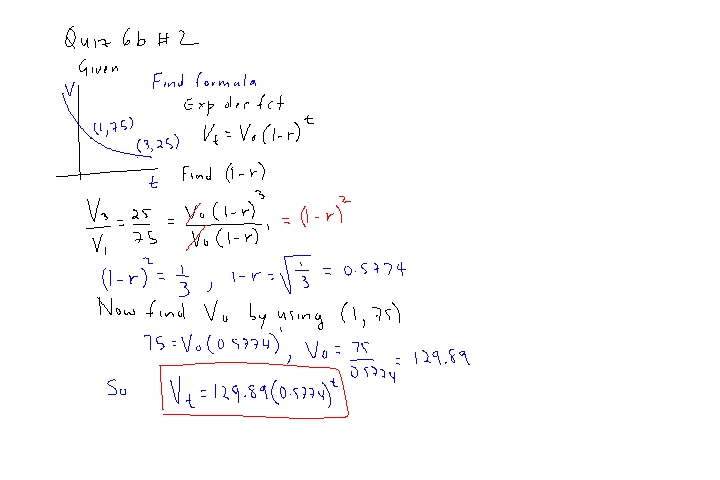 Quiz 6b #2
Given
Find formula
V
Exp decr fct
(1,75)
V_t = V_0 (1-r)^t
(3,25)
t
Find (1-r)
V_3/V_1 = 25/75 = V_0 (1-r)^3 / V_0 (1-r)^1 = (1-r)^2
(1-r)^2 = 1/3 , 1-r = √(1/3) = 0.5774
Now find V_0 by using (1,75)
75 = V_0 (0.5774)^1 , V_0 = 75/0.5774 = 129.89
So V_t = 129.89(0.5774)^t